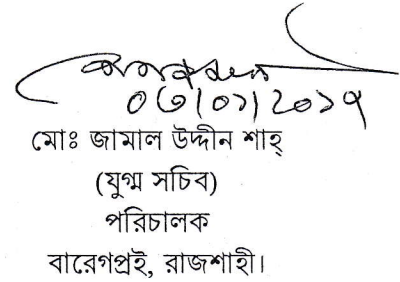 ০৩/০১/২০১৭
মোঃ জামাল উদ্দীন শাহ্
(যুগ্ম সচিব)
পরিচালক
বারেগপ্রই, রাজশাহী।